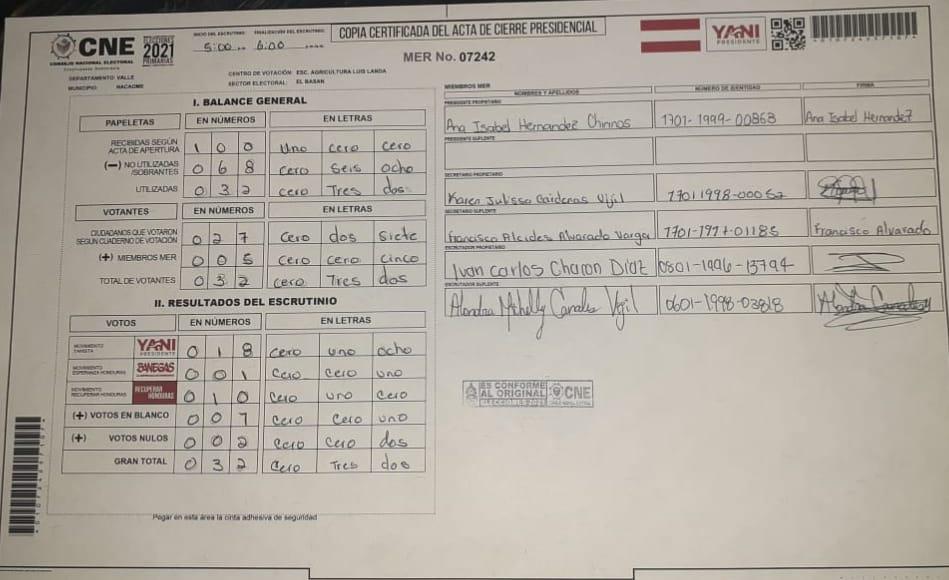 CNE
CONSEJO NACIONAL ELECTORAL
ELECCIONES 2021 PRIMARIAS
INICIO DEL ESCRUTINIO FINALIZACIÓN DEL ESCRUTINIO
5:00 6:00
COPIA CERTIFICADA DEL ACTA DE CIERRE PRESIDENCIAL
MER No. 07242
YANI
PRESIDENTE
DEPARTAMENTO VALLE
MUNICIPIO: NACAOME
CENTRO DE VOTACIÓN: ESC. AGRICULTURA LUIS LANDA
SECTOR ELECTORAL: EL BASAN
I. BALANCE GENERAL
PAPELETAS EN NÚMEROS EN LETRAS
RECIBIDAS SEGÚN ACTA DE APERTURA 1 0 0 Uno cero cero
(—) NO UTILIZADAS /SOBRANTES 0 6 8 cero seis ocho
UTILIZADAS 0 3 2 cero Tres dos
VOTANTES EN NÚMEROS EN LETRAS
CIUDADANOS QUE VOTARON SEGÚN CUADERNO DE VOTACIÓN 0 2 7 cero dos siete
(+) MIEMBROS MER 0 0 5 cero cero cinco
TOTAL DE VOTANTES 0 3 2 cero Tres dos
II. RESULTADOS DEL ESCRUTINIO
VOTOS EN NÚMEROS EN LETRAS
MOVIMIENTO YANISTA YANI PRESIDENTE 0 1 8 cero uno ocho
MOVIMIENTO ESPERANZA HONDURAS BANEGAS 0 0 1 cero cero uno
MOVIMIENTO RECUPERAR HONDURAS RECUPERAR HONDURAS 0 1 0 cero uno cero
(+) VOTOS EN BLANCO 0 0 1 cero cero uno
(+) VOTOS NULOS 0 0 2 cero cero dos
GRAN TOTAL 0 3 2 cero Tres dos
Pegar en esta área la cinta adhesiva de seguridad
MIEMBROS MER
NOMBRES Y APELLIDOS NÚMERO DE IDENTIDAD FIRMA
PRESIDENTE PROPIETARIO
Ana Isabel Hernandez Chirinos 1701-1999-00868 Ana Isabel Hernandez
PRESIDENTE SUPLENTE
SECRETARIO PROPIETARIO
Karen Julissa Cardenas Vijil 1701 1998-00052
SECRETARIO SUPLENTE
Francisco Alcides Alvarado Vargas 1701-1977-01185 Francisco Alvarado
ESCRUTADOR PROPIETARIO
Juan Carlos Chacon Diaz 0801-1996-13794
ESCRUTADOR SUPLENTE
Alondra Michelly Canales Vijil 0601-1998-03818
ES CONFORME AL ORIGINAL CNE